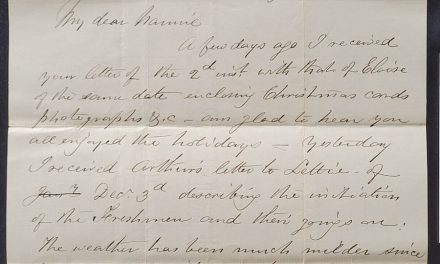 My dear Nannie
A few days ago I received
your letter of the 2d inst with that of Eloise
of the same date enclosing Christmas cards
photographs &c - am glad to hear you
all enjoyed the holidays - Yesterday
I received Arthur's letter to Lettie - of
Dec. 3d describing the initiation
of the Freshmen and their goings on.
The weather has been much milder since